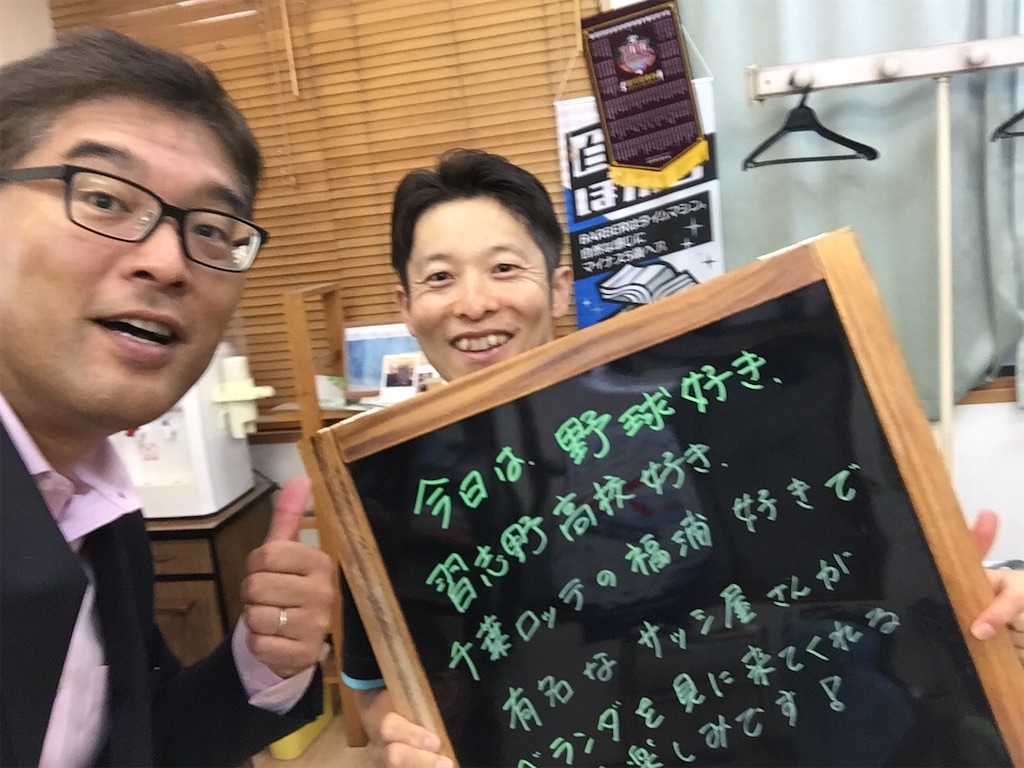 BARBERはタイムマシン
自然な感じに
マイナス5歳へ!!
今日は、野球好き、
習志野高校好き、
千葉ロッテの福浦 好きで
有名なサッシ屋さんが
ベランダを見に来てくれる
楽しみです!